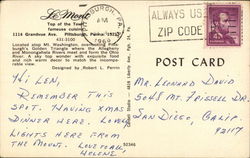 Le Mont
Top of the Town
famous cuisine.
1114 Grandview Ave. Pittsburgh, Penna. 15211
431-3100
Located atop Mt. Washington, overlooking Pitts-
burgh's Golden Triangle where the Allegheny
and Monongahela Rivers meet to form the Ohio
River. A sky top wonder with exquisite food
and rich warm decor to match the incompar-
able view.
Designed by Robert L. Perrin
PITTSBURGH, PA.
PM
1969
ALWAYS USE
ZIP CODE
POST CARD
Hi LEN,
REMEMBER THIS
SPOT. HAVING XMAS
DINNER HERE. LOVELY
LIGHTS HERE FROM
THE MOUNT. LOVE TO ALL,
HELENE
MR. LEONARD DAVID
5048 MT. FRISSELL DR.
SAN DIEGO, CALIF.
92117
52346